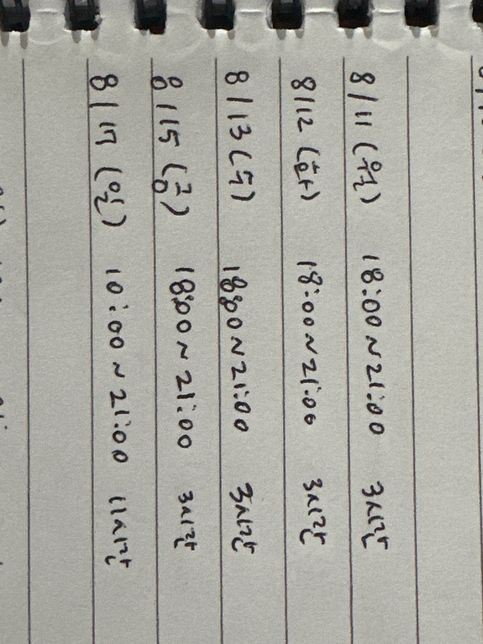 8/11 (월) 18:00~21:00 3시간
8/12 (화) 18:00~21:00 3시간
8/13 (수) 18:00~21:00 3시간
8/15 (금) 18:00~21:00 3시간
8/17 (일) 10:00~21:00 11시간